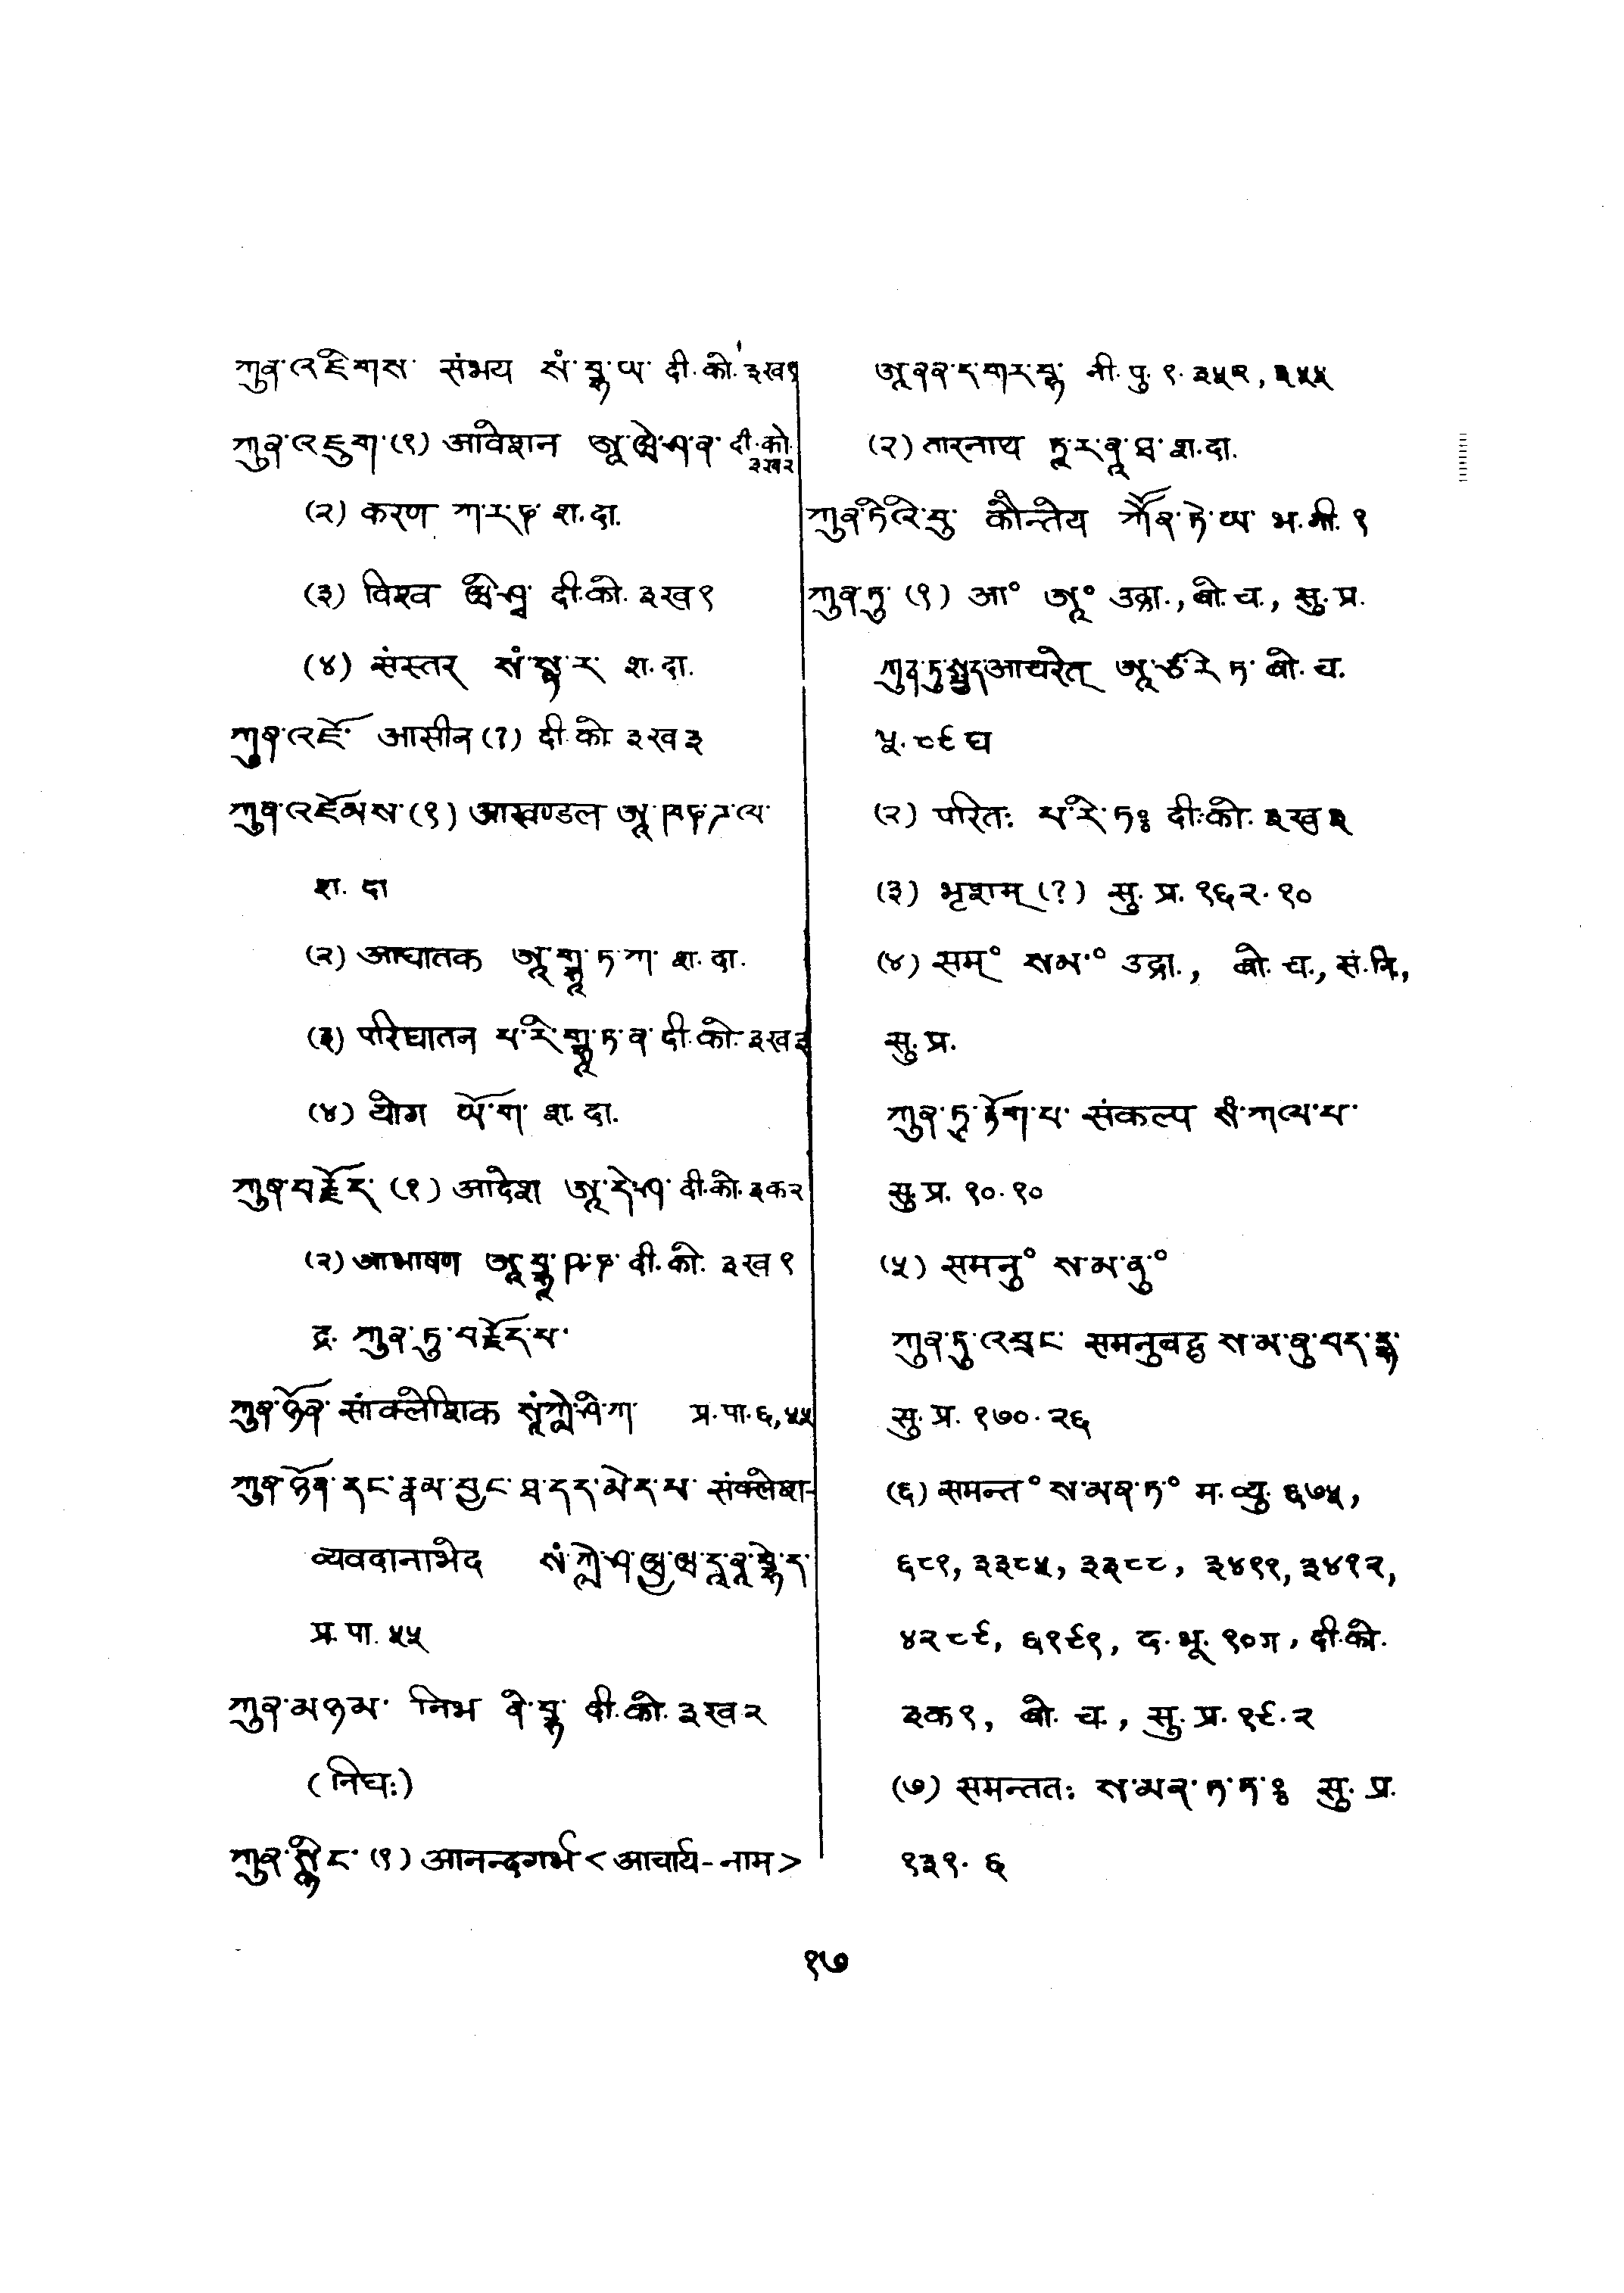 ཀུན་འཇིགས་ संभय སཾ་བྷ་ཡ་ दी.को.३ख१
ཀུན་འཇུག་(१) आवेशन ཨཱ་ཝེ་ཤ་ན་ दी.को.
३ख२
(२) करण ཀ་ར་ཎ་ श.दा.
(३) विश्व ཝི་ཤྭ་ दी.को. ३ख१
(४) संस्तर् སཾ་སྟ་ར་ श.दा.
ཀུན་འཇོ་ आसीन(?) दी.को ३ख३
ཀུན་འཇོམས་(१) आखण्डल ཨཱ་ཁཎ་ཌ་ལ་
श. दा
(२) आघातक ཨཱ་གྷཱ་ཏ་ཀ་ श. दा.
(३) परिघातन པ་རི་གྷཱ་ཏ་ན་ दी.को.३ख३
(४) योग ཡོ་ག་ श.दा.
ཀུན་བརྗོད་ (१) आदेश ཨཱ་དེ་ཤ་ दी.को.३क२
(२) आभाषण ཨཱ་བྷཱ་ཥ་ཎ་ दी.को. ३ख१
द्र. ཀུན་ཏུ་བརྗོད་པ་
ཀུན་ཉོན་ सांक्लेशिक སཱཾ་ཀླེ་ཤི་ཀ་ प्र.पा.६,५५
ཀུན་ཉོན་དང་རྣམ་བྱང་ཐ་དད་མེད་པ་ संक्लेश-
व्यवदानाभेद སཾ་ཀླེ་ཤ་ཝྱ་ཝ་དཱ་ནཱ་བྷེ་ད་
प्र.पा.५५
ཀུན་མཉམ་ निभ ནི་བྷ་ दी.को.३ख२
(निघः)
ཀུན་སྙིང་ (१) आनन्दगर्भ<आचार्य-नाम>
ཨཱ་ནན་ད་གར་བྷ་ नी.पु.१.३५२,३५५
(२) तारनाथ ཏཱ་ར་ནཱ་ཐ་ श.दा.
ཀུན་ཏིའི་བུ་ कौन्तेय ཀཽན་ཏེ་ཡ་ भ.गी.१
ཀུན་ཏུ་ (१) आ° ཨཱ° उद्रा.,बो.च., सु.प्र.
ཀུན་ཏུ་སྤྱད་ आचरेत् ཨཱ་ཙ་རེ་ཏ་ बो.च.
५.८९घ
(२) परितः པ་རི་ཏཿ दी.को.३ख३
(३) भृशम्(?) सु.प्र.१६२.१०
(४) सम्° སམ་° उद्रा., बो.च., सं.नि,
सु.प्र.
ཀུན་ཏུ་རྟོག་པ་ संकल्प སཾ་ཀལ་པ་
सु.प्र.१०.१०
(५) समनु° ས་མ་ནུ°
ཀུན་ཏུ་འབྲང་ समनुबद्ध ས་མ་ནུ་བད་དྷ་
सु.प्र.१७०.२६
(६) समन्त° ས་མན་ཏ་° म.व्यु.६७५,
६८१,३३८५,३३८८,३४११,३४१२,
४२८९,६१९१,द.भू.१०ग,दी.को.
३क१, बो.च., सु.प्र.१९.२
(७) समन्ततः ས་མན་ཏ་ཏཿ सु.प्र.
१३१.६
१७